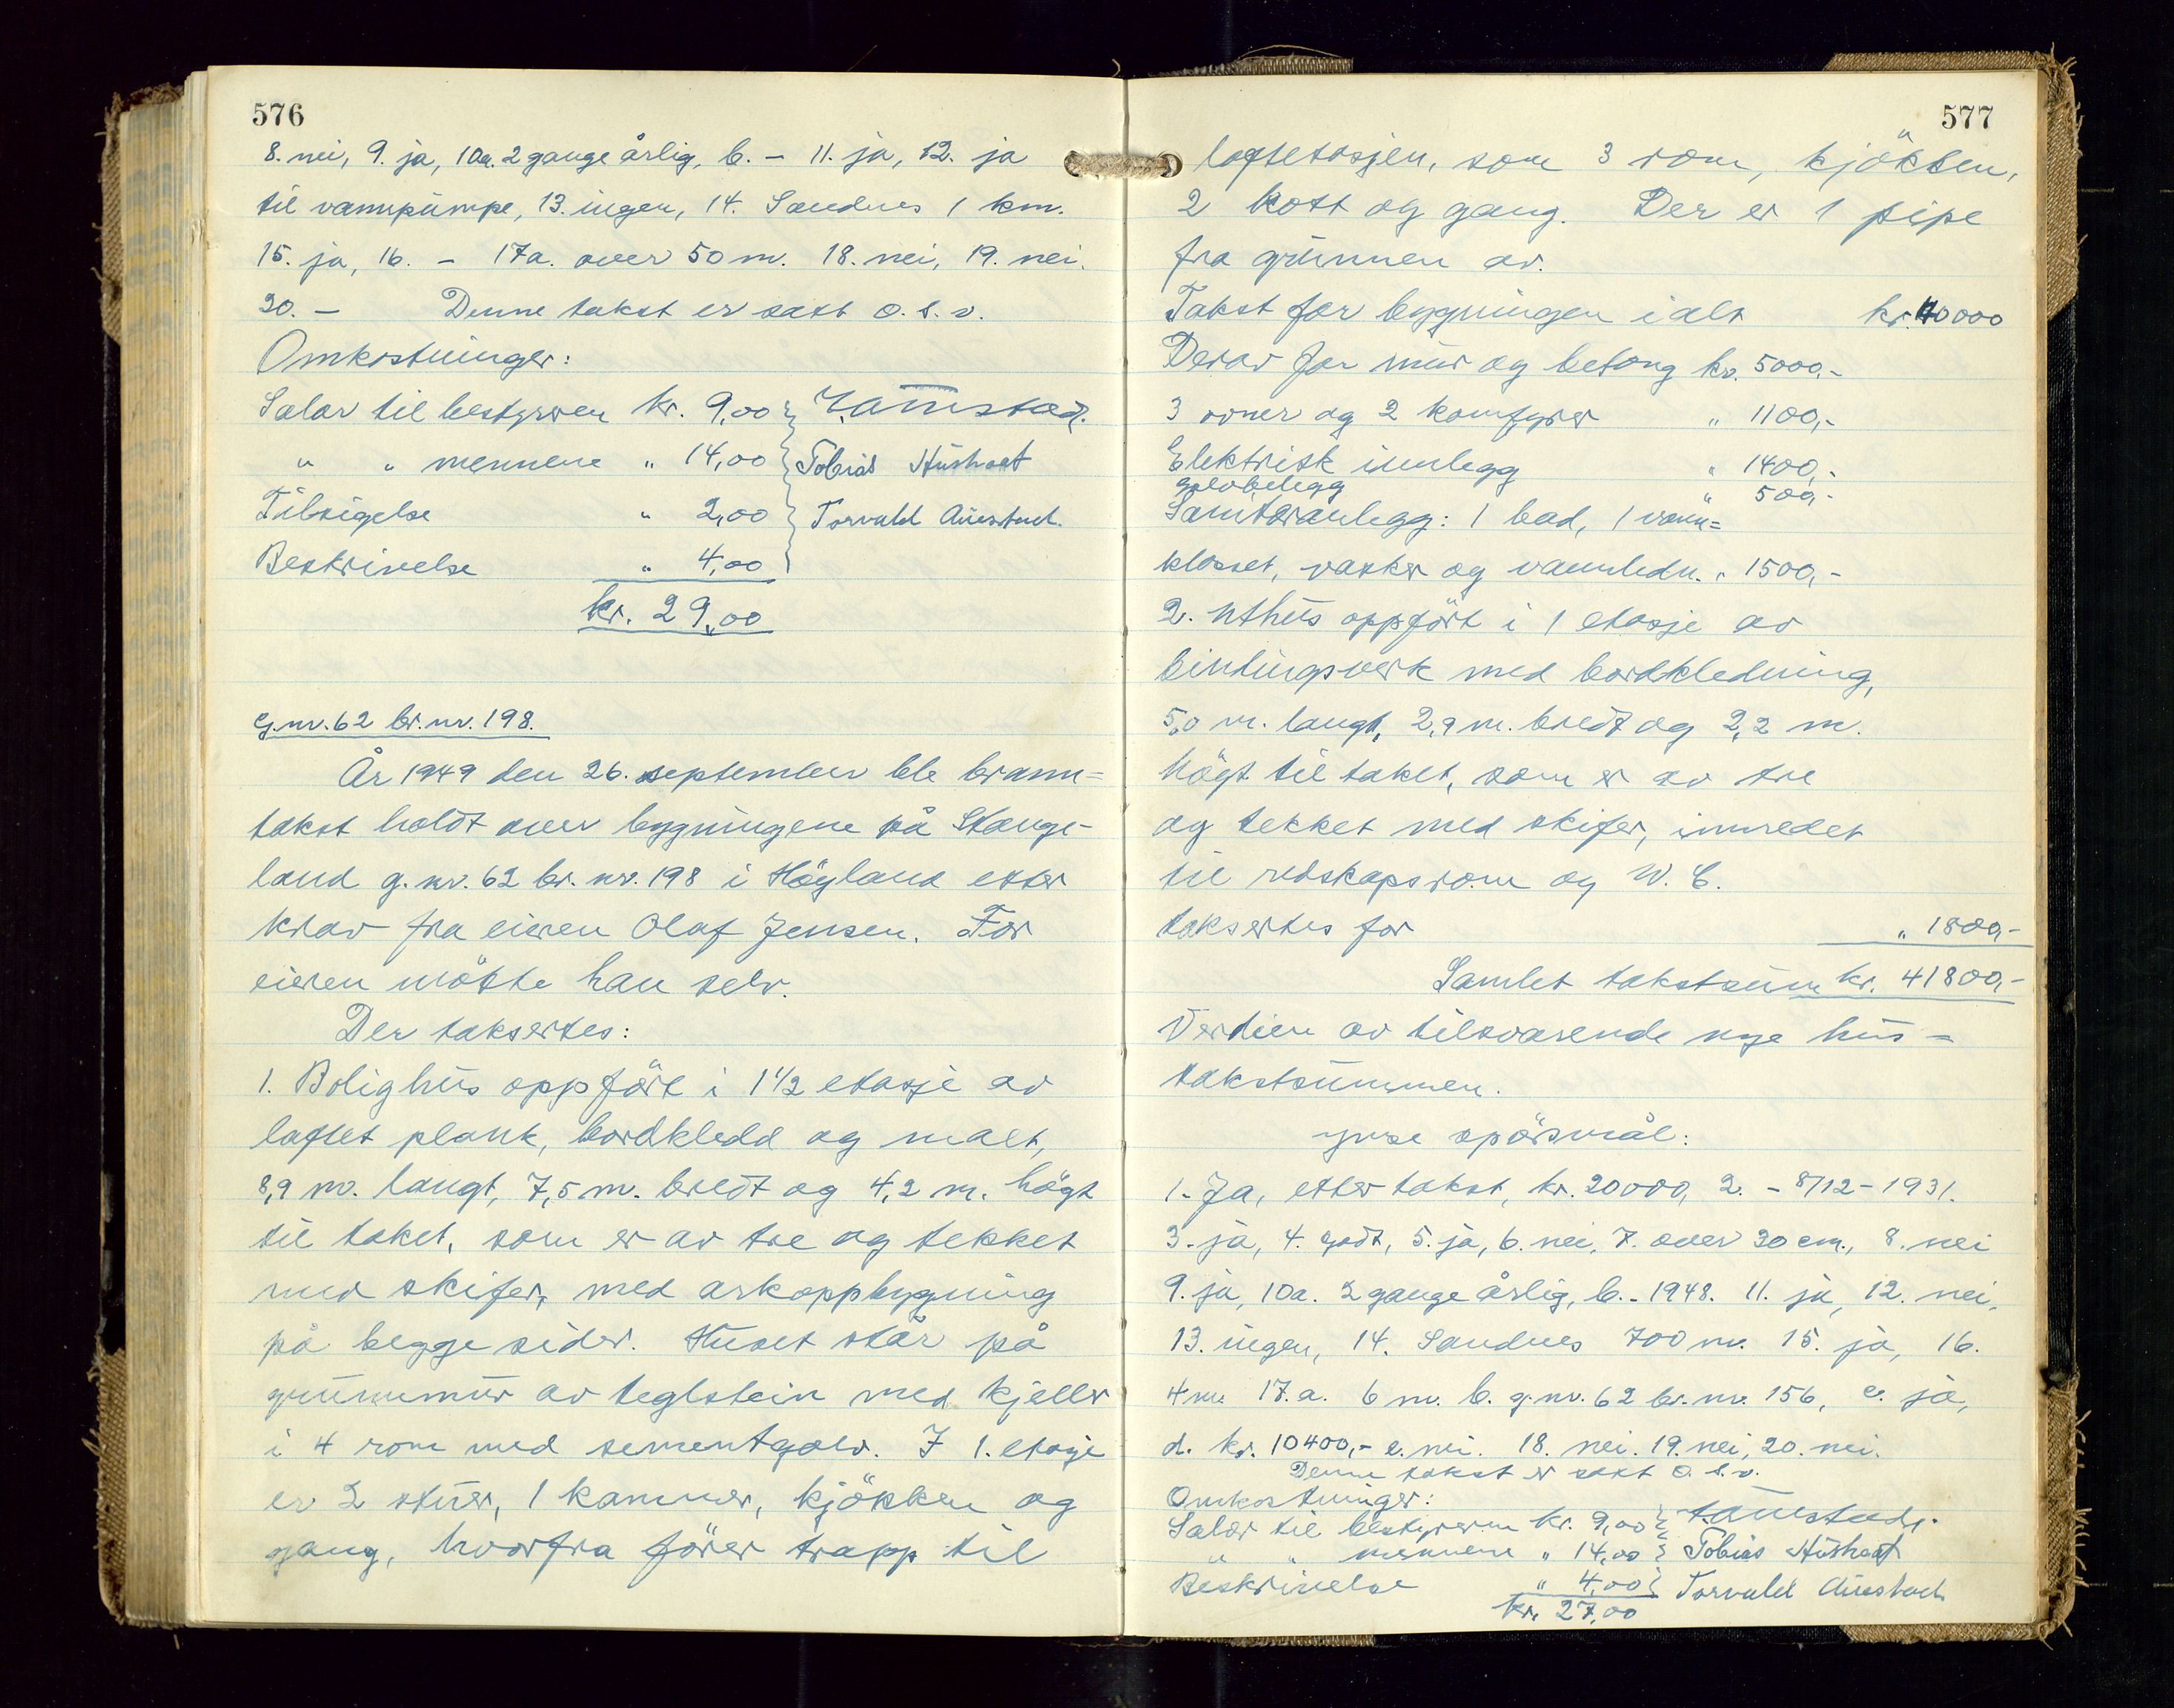 576
8. nei, 9. ja, 10a. 2 gange årlig, b. – 11. ja, 12. ja
til vannpumpe, 13. ingen, 14. Sandnes 1 km.
15. ja, 16. – 17a. over 50 m. 18. nei, 19. nei.
20. – Denne takst er satt o.s.v.
Omkostninger:
Salar til bestyreren kr. 9,00
" " mennene " 14,00 Tobias Husholt
Tilsigelse " 2,00 Torvald Auestad.
Beskrivelse " 4,00
kr. 29,00
g.nr. 62 br.nr. 198.
År 1949 den 26. september ble brann=
takst holdt over bygningene på Stange-
land g.nr. 62 br.nr. 198 i Höyland etter
krav fra eieren Olaf Jensen. For
eieren mötte han selv.
Der taksertes:
1. Bolighus oppfört i 1 1/2 etasje av
laftet plank, bordkledd og malt,
8,9 m. langt, 7,5 m. bredt og 4,2 m. högt
til taket, som er av tre og tekket
med skifer, med arkoppbygning
på begge sider. Huset står på
grunnmur av teglstein med kjeller
i 4 rom med sementgolv. I 1. etasje
er 2 stuer, 1 kammer, kjökken og
gang, hvorfra förer trapp til
577
loftetasjen, som 3 rom, kjökken,
2 kott og gang. Der er 1 pipe
fra grunnen av.
Takst for bygningen ialt kr. 40000
Derav for mur og betong kr. 5000,-
3 ovner og 2 komfyrer " 1100,-
Elektrisk innlegg " 1400,-
golvbelegg " 500,-
Sanitæranlegg: 1 bad, 1 vann=
klosset, vasker og vannledn. " 1500,-
2. Uthus oppfört i 1 etasje av
bindingsverk med bordkledning,
5,0 m. langt, 2,9 m. bredt og 2,2 m.
högt til taket, som er av tre
og tekket med skifer, innredet
til redskapsrom og W.C.
taksertes for " 1800,-
Samlet takstsum kr. 41800,-
Verdien av tilsvarende nye hus =
takstsummen.
Ymse spörsmål:
1. Ja, etter takst, kr. 20000, 2. – 8/12 – 1931.
3. ja, 4. godt, 5. ja, 6. nei, 7. over 30 cm., 8. nei
9. ja, 10a. 2 gange årlig, b. – 1948. 11. ja, 12. nei,
13. ingen, 14. Sandnes 700 m. 15. ja, 16.
4 m. 17.a. 6 m. b. g.nr. 62 br.nr. 156, c. ja,
d. kr. 10400,- e. nei. 18. nei. 19. nei, 20. nei.
Denne takst er satt o.s.v.
Omkostninger:
Salar til bestyreren kr. 9,00
" " mennene " 14,00 Tobias Husholt
Beskrivelse " 4,00 Torvald Auestad
kr. 27,00